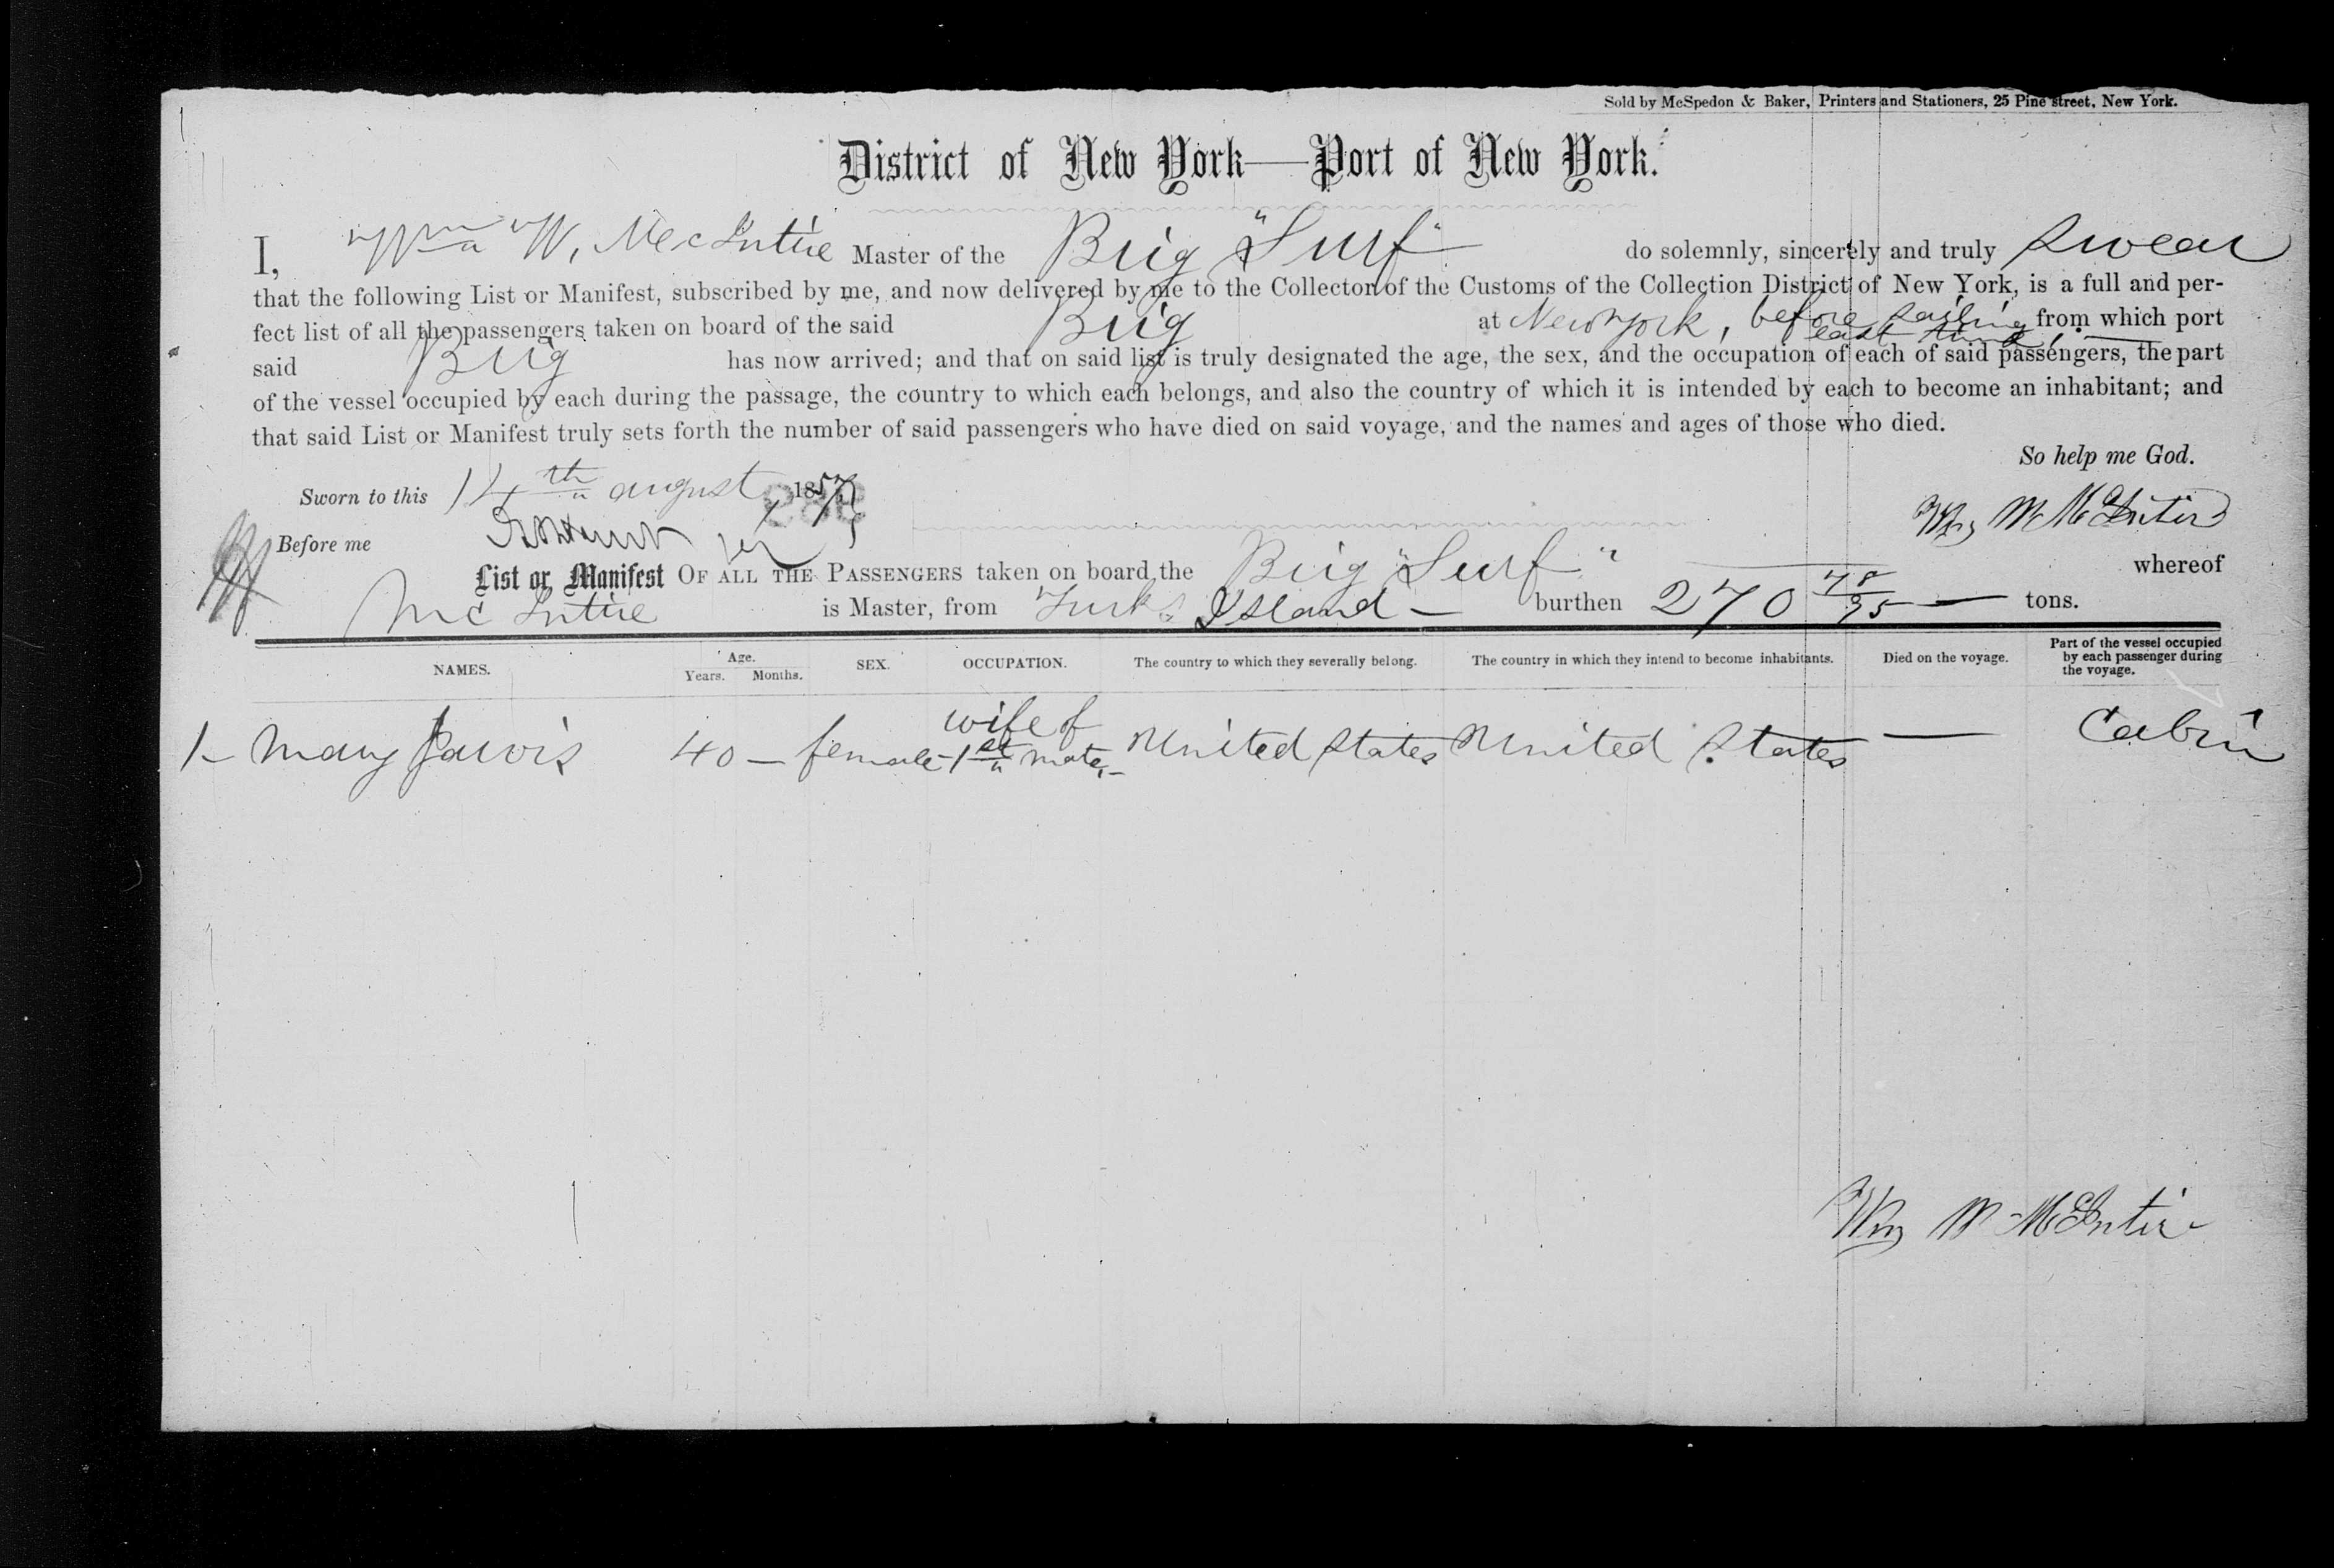 Sold by McSpedon & Baker, Printers and Stationers, 25 Pine street, New York.
District of New York—Port of New York.
I, Wm W, McIntire Master of the Brig "Surf" do solemnly, sincerely and truly swear
that the following List or Manifest, subscribed by me, and now delivered by me to the Collector of the Customs of the Collection District of New York, is a full and per-
fect list of all the passengers taken on board of the said Brig at New York, before sailing from which port
last time,
said Brig has now arrived; and that on said list is truly designated the age, the sex, and the occupation of each of said passengers, the part
of the vessel occupied by each during the passage, the country to which each belongs, and also the country of which it is intended by each to become an inhabitant; and
that said List or Manifest truly sets forth the number of said passengers who have died on said voyage, and the names and ages of those who died.
So help me God.
Sworn to this 14th august 1857
Wm W McIntire
Before me
List or Manifest OF ALL THE PASSENGERS taken on board the Brig "Surf" whereof
McIntire is Master, from Turks Island — burthen 270 78/95 — tons.
NAMES. Age. Years. Months. SEX. OCCUPATION. The country to which they severally belong. The country in which they intend to become inhabitants. Died on the voyage. Part of the vessel occupied by each passenger during the voyage.
1- Mary Jarvis 40 — female - wife of 1st mate, - United States United States — Cabin
Wm W McIntire